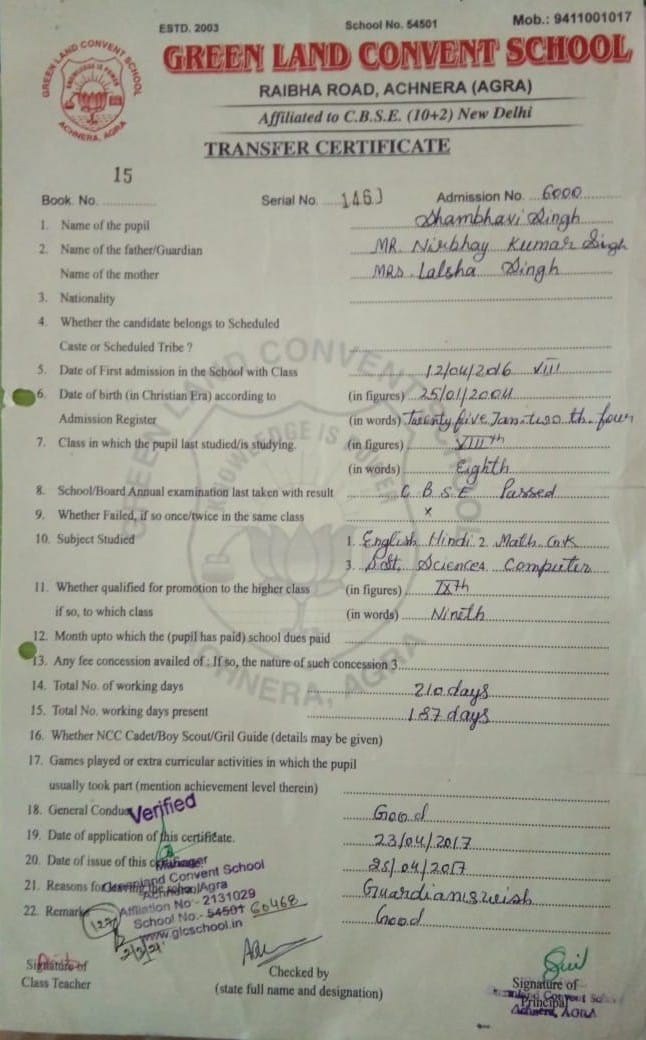 ESTD. 2003 School No. 54501 Mob.: 9411001017
GREEN LAND CONVENT SCHOOL
GREEN LAND CONVENT SCHOOL
KNOWLEDGE IS POWER
ACHNERA, AGRA
RAIBHA ROAD, ACHNERA (AGRA)
Affiliated to C.B.S.E. (10+2) New Delhi
TRANSFER CERTIFICATE
15
Book. No. Serial No. 146 Admission No. 6000
1. Name of the pupil Shambhavi Singh
2. Name of the father/Guardian MR. Nirbhay Kumar Sigh
Name of the mother MRS. Lalsha Singh
3. Nationality
4. Whether the candidate belongs to Scheduled
Caste or Scheduled Tribe ?
5. Date of First admission in the School with Class 12/04/2016 VIII
6. Date of birth (in Christian Era) according to (in figures) 25/01/2004
Admission Register (in words) Twenty five Jan. two th. four
7. Class in which the pupil last studied/is studying. (in figures) VIIIth
(in words) Eighth
8. School/Board Annual examination last taken with result C B S E Passed
9. Whether Failed, if so once/twice in the same class x
10. Subject Studied 1. English Hindi 2. Math. G.K
3. S.st. Sciences Computer
11. Whether qualified for promotion to the higher class (in figures) IXth
if so, to which class (in words) Nineth
12. Month upto which the (pupil has paid) school dues paid
13. Any fee concession availed of : If so, the nature of such concession 3
14. Total No. of working days 210 days
15. Total No. working days present 187 days
16. Whether NCC Cadet/Boy Scout/Gril Guide (details may be given)
17. Games played or extra curricular activities in which the pupil
usually took part (mention achievement level therein)
18. General Conduct Good
Verified
19. Date of application of this certificate. 23/04/2017
20. Date of issue of this 25/04/2017
Manager
21. Reasons for leaving the school Guardianswish
Greenland Convent School
Achnera/Agra
22. Remark Good
Affilation No - 2131029
School No.- 54501 60468
www.glcschool.in
127
Signature of
Class Teacher
Checked by
(state full name and designation)
Signature of
Principal
Greenland Convent School
Achnera, AGRA
GREEN LAND CONVENT SCHOOL
KNOWLEDGE IS POWER
ACHNERA, AGRA